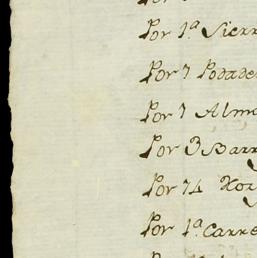 Por 1ª Sierr
Por 7 Podade
Por 1 Alm
Por 3 Barr
Por 14
Por 1ª Carre